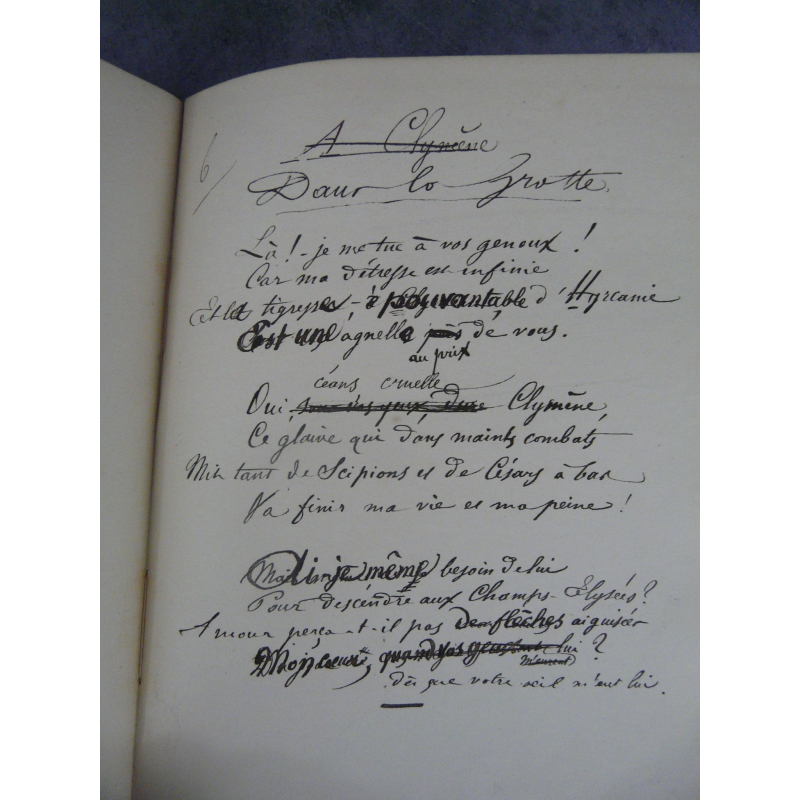 6/
A Clymène
Dans la Grotte.
Là ! - je me tue à vos genoux !
Car ma détresse est infinie
Et la tigresse épouvantable d'Hyrcanie
Est une agnelle près de vous.
au prix
céans cruelle
Oui, Clymène,
Ce glaive qui dans maints combats
Mit tant de Scipions et de Césars à bas
Va finir ma vie et ma peine !
Ai-je même besoin de lui
Pour descendre aux Champs-Elysées ?
Amour perça-t-il pas de flèches aiguisées
Mon cœur, lui ?
m'eurent
dès que votre œil m'eut lui.